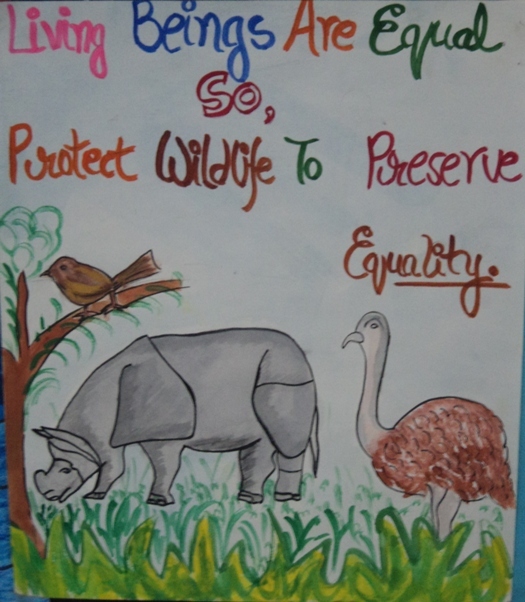 Living Beings Are Equal
So,
Protect Wildlife To Preserve
Equality.